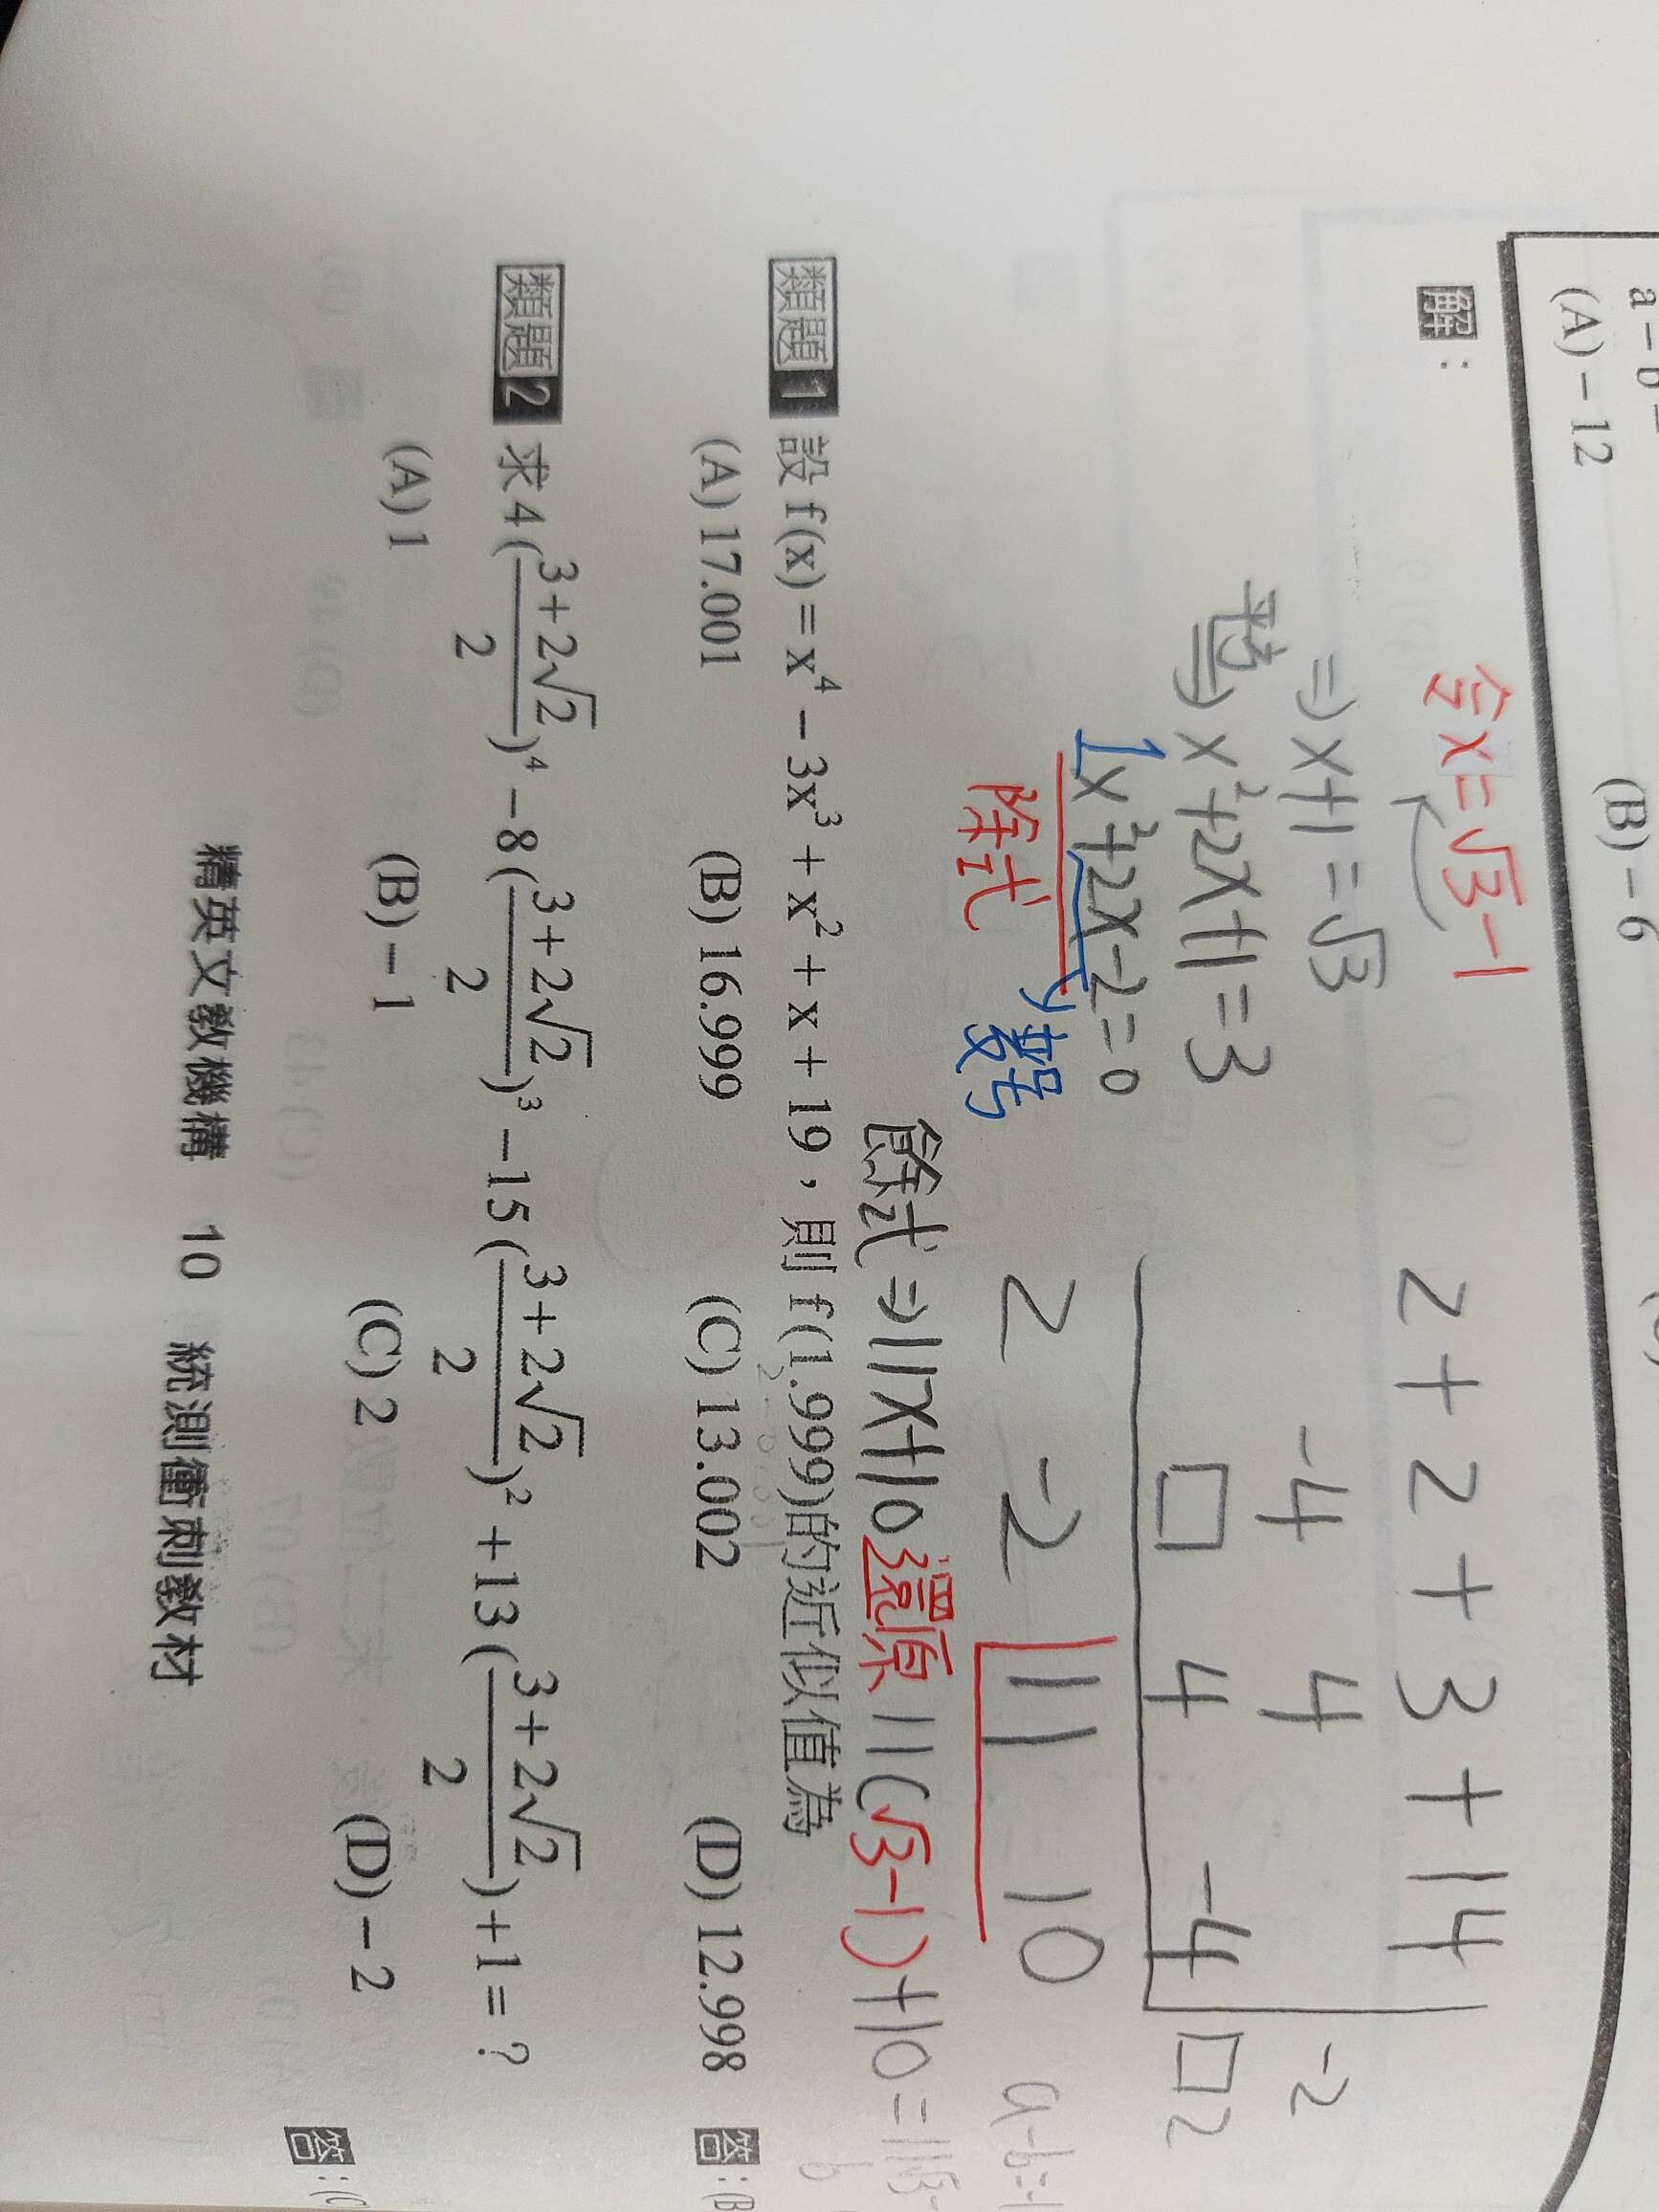 a－b＝
(A)－12 (B)－6
解：
令x=√3-1
⇒x+1=√3
平方⇒x²+2x+1=3
1x²+2x-2=0
除式
變号
2+2+3+14
-4 4 -2
□ 4 -4 □2
2 -2 11 10
餘式⇒11x+10 還原 11(√3-1)+10=11√3-
類題1 設 f(x)＝x⁴－3x³＋x²＋x＋19，則 f(1.999)的近似值為
(A) 17.001 (B) 16.999 (C) 13.002 (D) 12.998 答：(B
類題2 求 4(\frac{3+2√2}{2})⁴－8(\frac{3+2√2}{2})³－15(\frac{3+2√2}{2})²＋13(\frac{3+2√2}{2})＋1＝？
(A) 1 (B)－1 (C) 2 (D)－2 答：(C
精英文教機構 10 統測衝刺教材